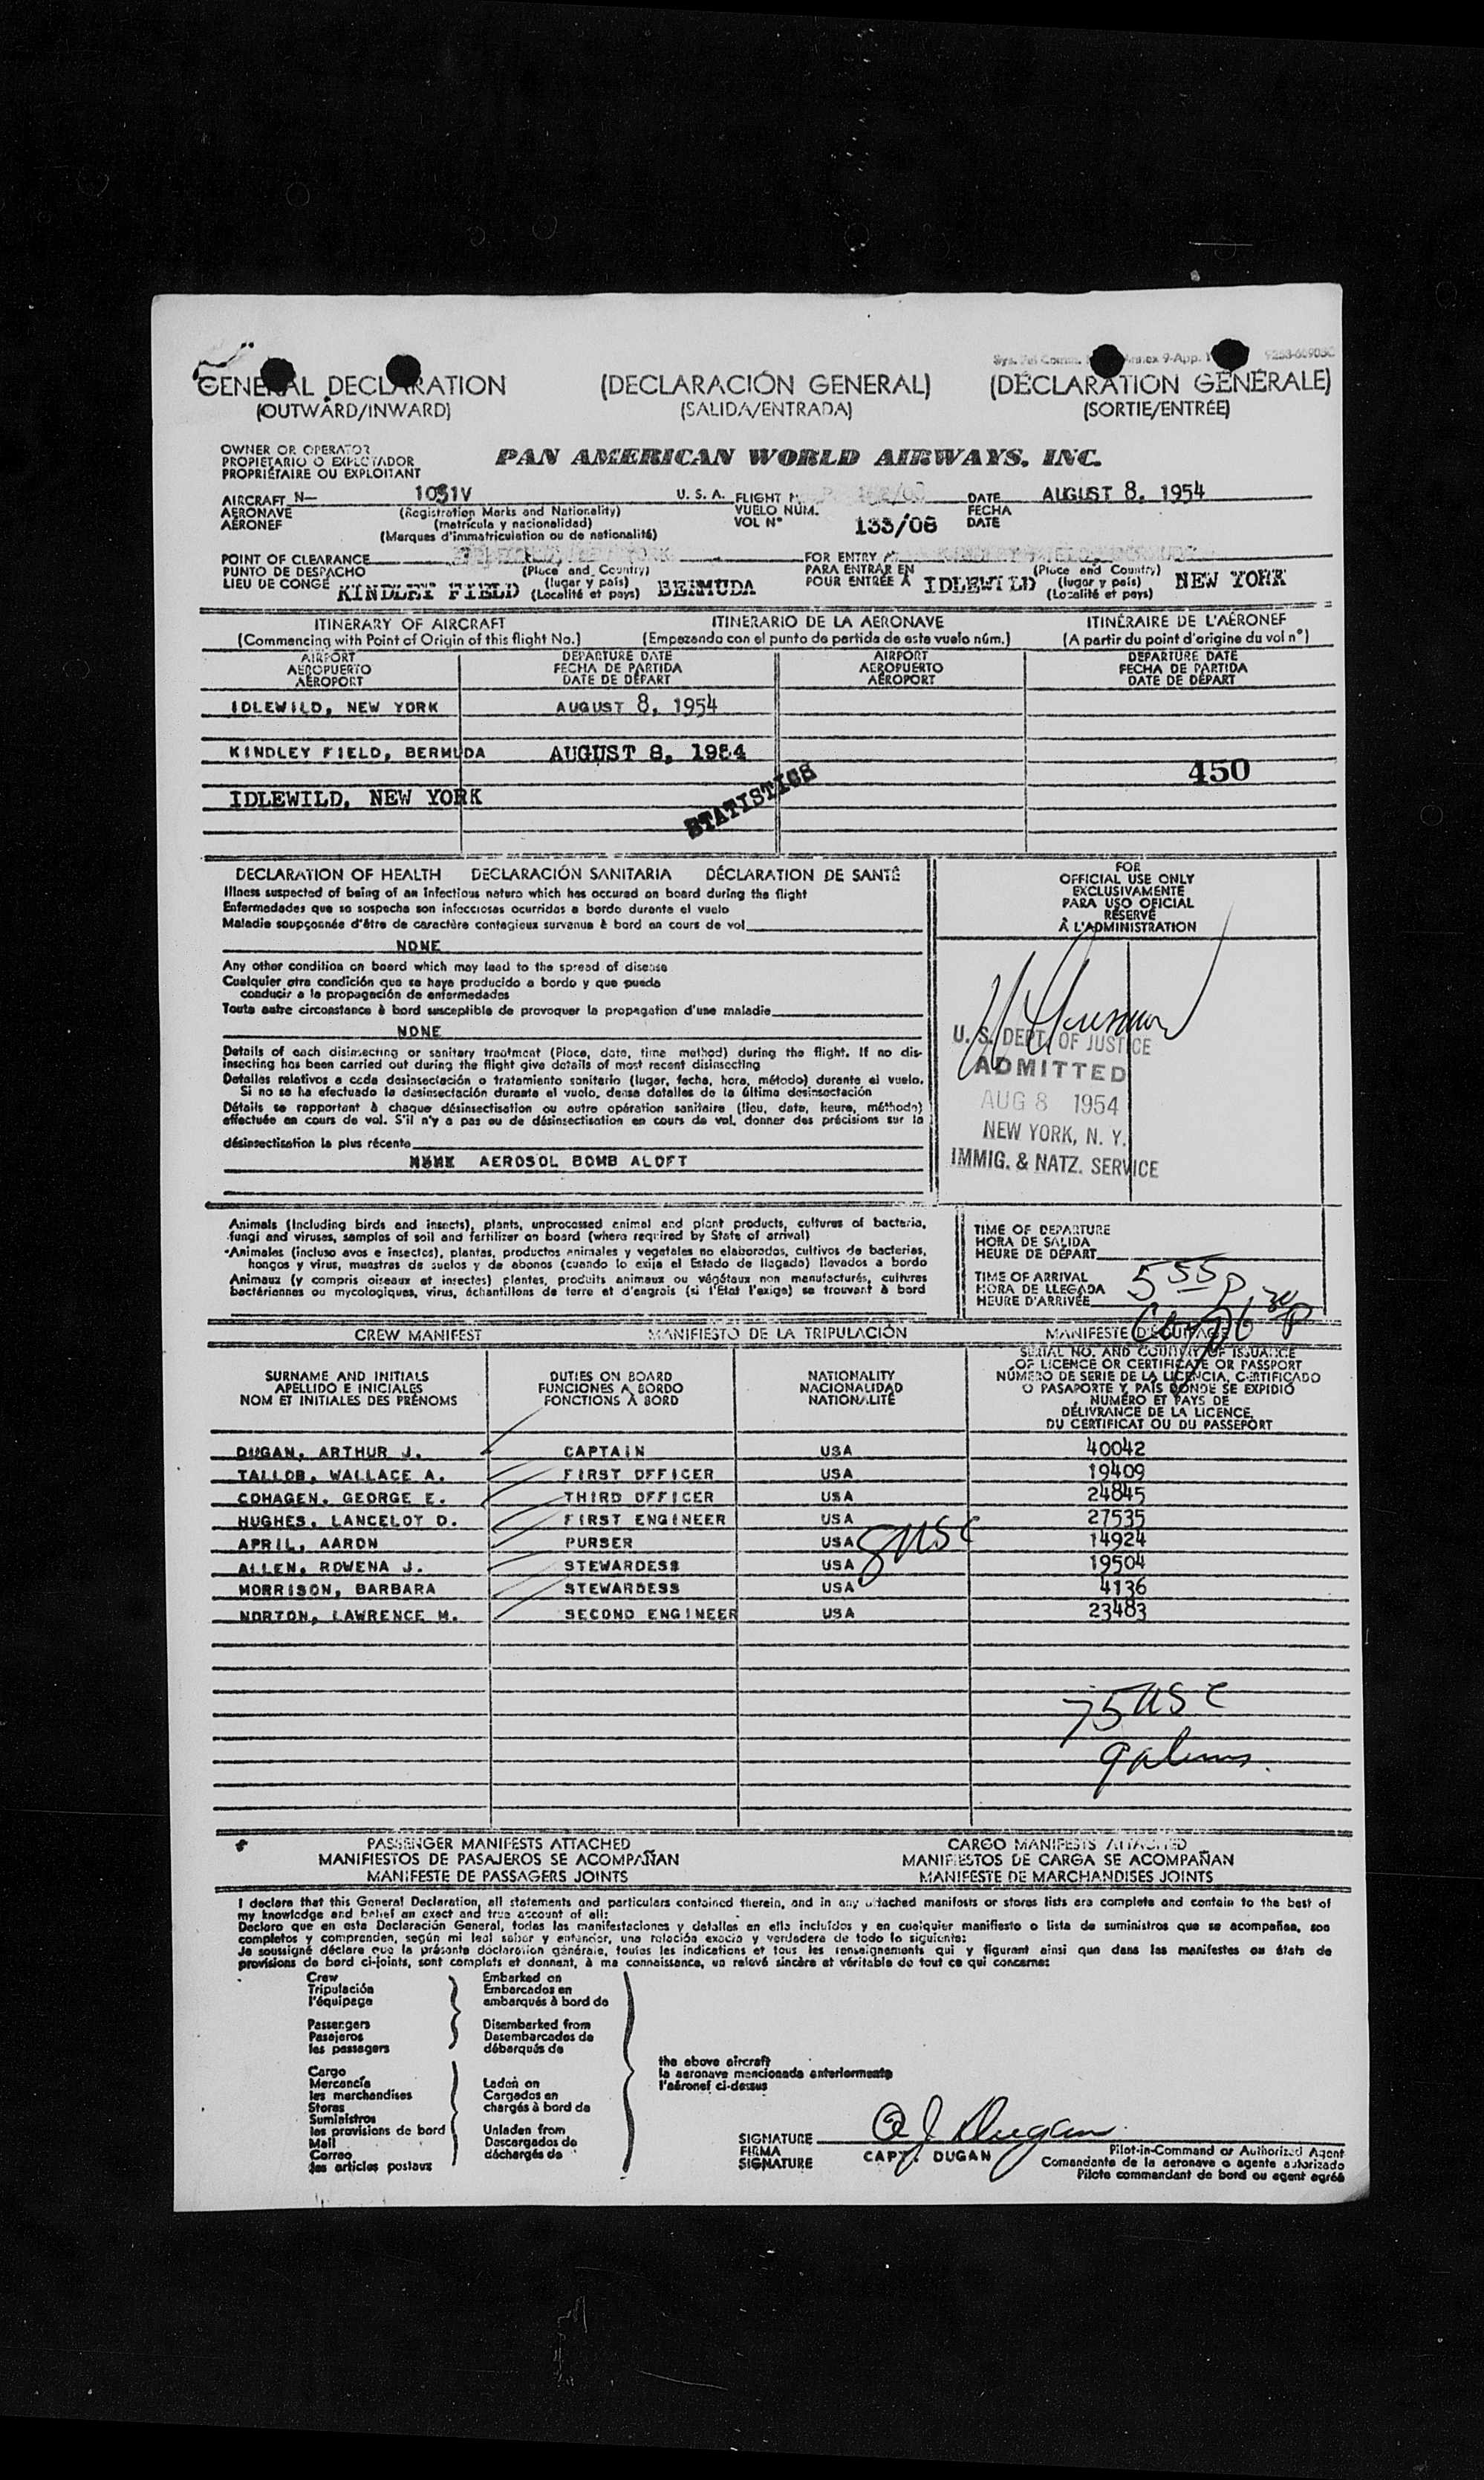 GENERAL DECLARATION (DECLARACIÓN GENERAL) (DÉCLARATION GÉNÉRALE)
(OUTWARD/INWARD) (SALIDA/ENTRADA) (SORTIE/ENTRÉE)
OWNER OR OPERATOR
PROPIETARIO O EXPLOTADOR
PROPRIÉTAIRE OU EXPLOITANT
PAN AMERICAN WORLD AIRWAYS, INC.
AIRCRAFT N— 1031V U. S. A. FLIGHT DATE AUGUST 8, 1954
AERONAVE (Registration Marks and Nationality) VUELO NÚM. FECHA
AÉRONEF (matrícula y nacionalidad) VOL Nº 133/08 DATE
(Marques d'immatriculation ou de nationalité)
POINT OF CLEARANCE FOR ENTRY
PUNTO DE DESPACHO (Place and Country) PARA ENTRAR EN (Place and Country)
LIEU DE CONGÉ KINDLEY FIELD (lugar y país) BERMUDA POUR ENTRÉE À IDLEWILD (lugar y país) NEW YORK
(Localité et pays) (Localité et pays)
ITINERARY OF AIRCRAFT ITINERARIO DE LA AERONAVE ITINÉRAIRE DE L'AÉRONEF
(Commencing with Point of Origin of this flight No.) (Empezando con el punto de partida de este vuelo núm.) (A partir du point d'origine du vol nº)
AIRPORT DEPARTURE DATE AIRPORT DEPARTURE DATE
AEROPUERTO FECHA DE PARTIDA AEROPUERTO FECHA DE PARTIDA
AÉROPORT DATE DE DÉPART AÉROPORT DATE DE DÉPART
IDLEWILD, NEW YORK AUGUST 8, 1954
KINDLEY FIELD, BERMUDA AUGUST 8, 1954
450
IDLEWILD, NEW YORK
STATISTICS
DECLARATION OF HEALTH DECLARACIÓN SANITARIA DÉCLARATION DE SANTÉ
Illness suspected of being of an infectious nature which has occured on board during the flight
Enfermedades que se sospecha son infecciosas ocurridas a bordo durante el vuelo
Maladie soupçonnée d'être de caractère contagieux survenue à bord en cours de vol
NONE
Any other condition on board which may lead to the spread of disease
Cualquier otra condición que se haya producido a bordo y que pueda
conducir a la propagación de enfermedades
Toute autre circonstance à bord susceptible de provoquer la propagation d'une maladie
NONE
Details of each disinsecting or sanitary treatment (Place, date, time method) during the flight. If no dis-
insecting has been carried out during the flight give details of most recent disinsecting
Detalles relativos a cada desinsectación o tratamiento sanitario (lugar, fecha, hora, método) durante el vuelo.
Si no se ha efectuado la desinsectación durante el vuelo, dense detalles de la última desinsectación
Détails se rapportant à chaque désinsectisation ou autre opération sanitaire (lieu, date, heure, méthode)
effectuée en cours de vol. S'il n'y a pas eu de désinsectisation en cours de vol, donner des précisions sur la
désinsectisation la plus récente
NONE AEROSOL BOMB ALOFT
FOR
OFFICIAL USE ONLY
EXCLUSIVAMENTE
PARA USO OFICIAL
RÉSERVÉ
À L'ADMINISTRATION
U. S. DEPT. OF JUSTICE
ADMITTED
AUG 8 1954
NEW YORK, N. Y.
IMMIG. & NATZ. SERVICE
Animals (Including birds and insects), plants, unprocessed animal and plant products, cultures of bacteria,
fungi and viruses, samples of soil and fertilizer on board (where required by State of arrival)
Animales (incluso aves e insectos), plantas, productos animales y vegetales no elaborados, cultivos de bacterias,
hongos y virus, muestras de suelos y de abonos (cuando lo exija el Estado de llegada) llevados a bordo
Animaux (y compris oiseaux et insectes) plantes, produits animaux ou végétaux non manufacturés, cultures
bactériennes ou mycologiques, virus, échantillons de terre et d'engrais (si l'État l'exige) se trouvant à bord
TIME OF DEPARTURE
HORA DE SALIDA
HEURE DE DÉPART
TIME OF ARRIVAL
HORA DE LLEGADA
HEURE D'ARRIVÉE
5 55 p
6 30 p
CREW MANIFEST MANIFIESTO DE LA TRIPULACIÓN MANIFESTE D'ÉQUIPAGE
SURNAME AND INITIALS
APELLIDO E INICIALES
NOM ET INITIALES DES PRÉNOMS
DUTIES ON BOARD
FUNCIONES A BORDO
FONCTIONS À BORD
NATIONALITY
NACIONALIDAD
NATIONALITÉ
SERIAL NO. AND COUNTRY OF ISSUANCE
OF LICENCE OR CERTIFICATE OR PASSPORT
NÚMERO DE SERIE DE LA LICENCIA, CERTIFICADO
O PASAPORTE Y PAÍS DONDE SE EXPIDIÓ
NUMÉRO ET PAYS DE
DÉLIVRANCE DE LA LICENCE,
DU CERTIFICAT OU DU PASSEPORT
DUGAN, ARTHUR J. CAPTAIN USA 40042
TALLOB, WALLACE A. FIRST OFFICER USA 19409
COHAGEN, GEORGE E. THIRD OFFICER USA 24845
HUGHES, LANCELOT D. FIRST ENGINEER USA 27535
APRIL, AARON PURSER USA 14924
8 USC
ALLEN, ROWENA J. STEWARDESS USA 19504
MORRISON, BARBARA STEWARDESS USA 4136
NORTON, LAWRENCE M. SECOND ENGINEER USA 23483
75 USC
9 aliens.
PASSENGER MANIFESTS ATTACHED CARGO MANIFESTS ATTACHED
MANIFIESTOS DE PASAJEROS SE ACOMPAÑAN MANIFIESTOS DE CARGA SE ACOMPAÑAN
MANIFESTE DE PASSAGERS JOINTS MANIFESTE DE MARCHANDISES JOINTS
I declare that this General Declaration, all statements and particulars contained therein, and in any attached manifests or stores lists are complete and contain to the best of
my knowledge and belief an exact and true account of all:
Declaro que en esta Declaración General, todas las manifestaciones y detalles en ella incluídos y en cualquier manifiesto o lista de suministros que se acompañan, son
completos y comprenden, según mi leal saber y entender, una relación exacta y verdadera de todo lo siguiente:
Je soussigné déclare que la présente déclaration générale, toutes les indications et tous les renseignements qui y figurent ainsi que dans les manifestes ou états de
provisions de bord ci-joints, sont complets et donnent, à ma connaissance, un relevé sincère et véritable de tout ce qui concerne:
Crew Embarked on
Tripulación Embarcados en
l'équipage embarqués à bord de
Passengers Disembarked from
Pasajeros Desembarcados de
les passagers débarqués de
Cargo
Mercancía Laden on
les marchandises Cargados en
Stores chargés à bord de
Suministros
les provisions de bord Unladen from
Mail Descargados de
Correo déchargés de
les articles postaux
the above aircraft
la aeronave mencionada anteriormente
l'aéronef ci-dessus
SIGNATURE A J Dugan
FIRMA CAPT. DUGAN Pilot-in-Command or Authorized Agent
SIGNATURE Comandante de la aeronave o agente autorizado
Pilote commandant de bord ou agent agréé